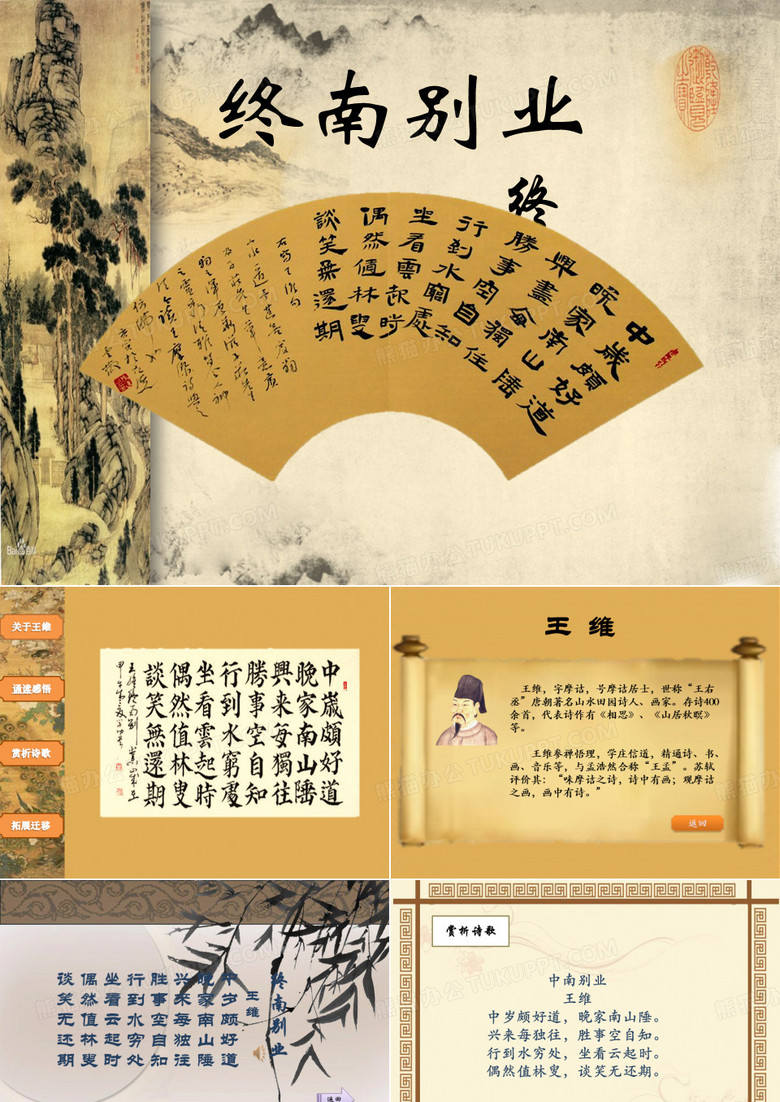 终南别业
终
中歲頗好道
晚家南山陲
興來每獨往
勝事空自知
行到水窮處
坐看雲起時
偶然值林叟
談笑無還期
关于王维
通速感悟
赏析诗歌
拓展迁移
中歲頗好道
晚家南山陲
興來每獨往
勝事空自知
行到水窮處
坐看雲起時
偶然值林叟
談笑無還期
王维
王维，字摩诘，号摩诘居士，世称“王右
丞”唐朝著名山水田园诗人、画家。存诗400
余首，代表诗作有《相思》、《山居秋暝》
等。
王维参禅悟理，学庄信道，精通诗、书、
画、音乐等，与孟浩然合称“王孟”。苏轼
评价其：“味摩诘之诗，诗中有画；观摩诘
之画，画中有诗。”
返回
终南别业
王维
中岁颇好道
晚家南山陲
兴来每独往
胜事空自知
行到水穷处
坐看云起时
偶然值林叟
谈笑无还期
返回
赏析诗歌
中南别业
王维
中岁颇好道，晚家南山陲。
兴来每独往，胜事空自知。
行到水穷处，坐看云起时。
偶然值林叟，谈笑无还期。